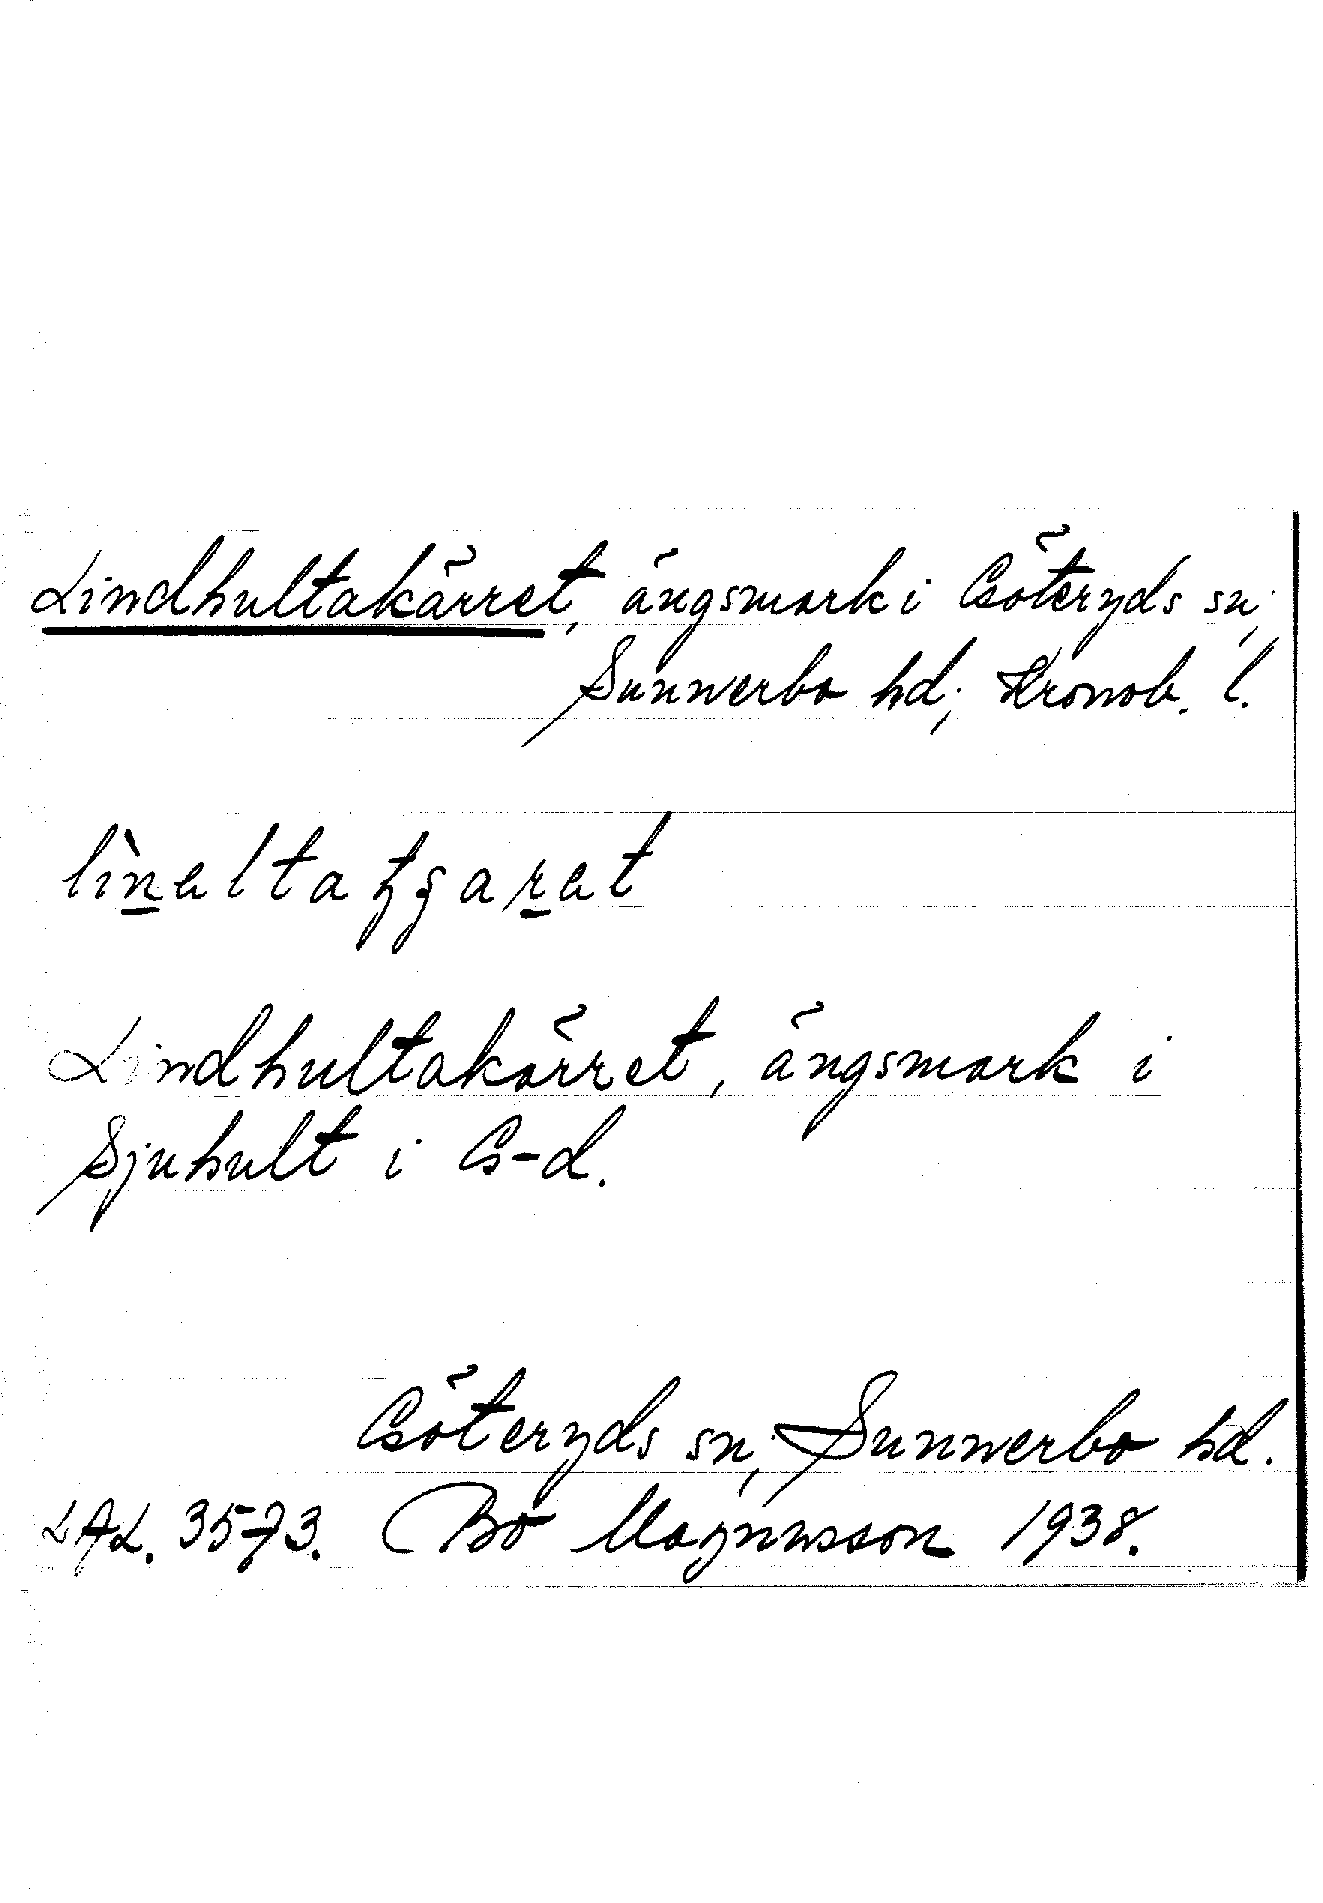 Lindhultakärret, ängsmark i Göteryds sn,
Sunnerbo hd, Kronob. l.
Lindhultakärret, ängsmark i
Sjuhult i G-d.
Göteryds sn, Sunnerbo hd.
LAL. 3573. Bo Magnusson 1938.